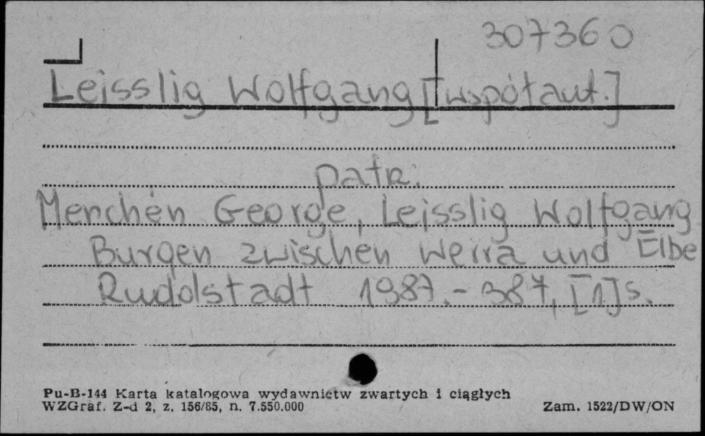 307360
Leisslig Wolfgang [współaut.]
patrz:
Menchén George, Leisslig Wolfgang
Burgen zwischen Werra und Elbe
Rudolstadt 1987.- 387, [1] s.
Pu-B-144 Karta katalogowa wydawnictw zwartych i ciągłych
WZGraf. Z-d 2, z. 156/85, n. 7.550.000
Zam. 1522/DW/ON